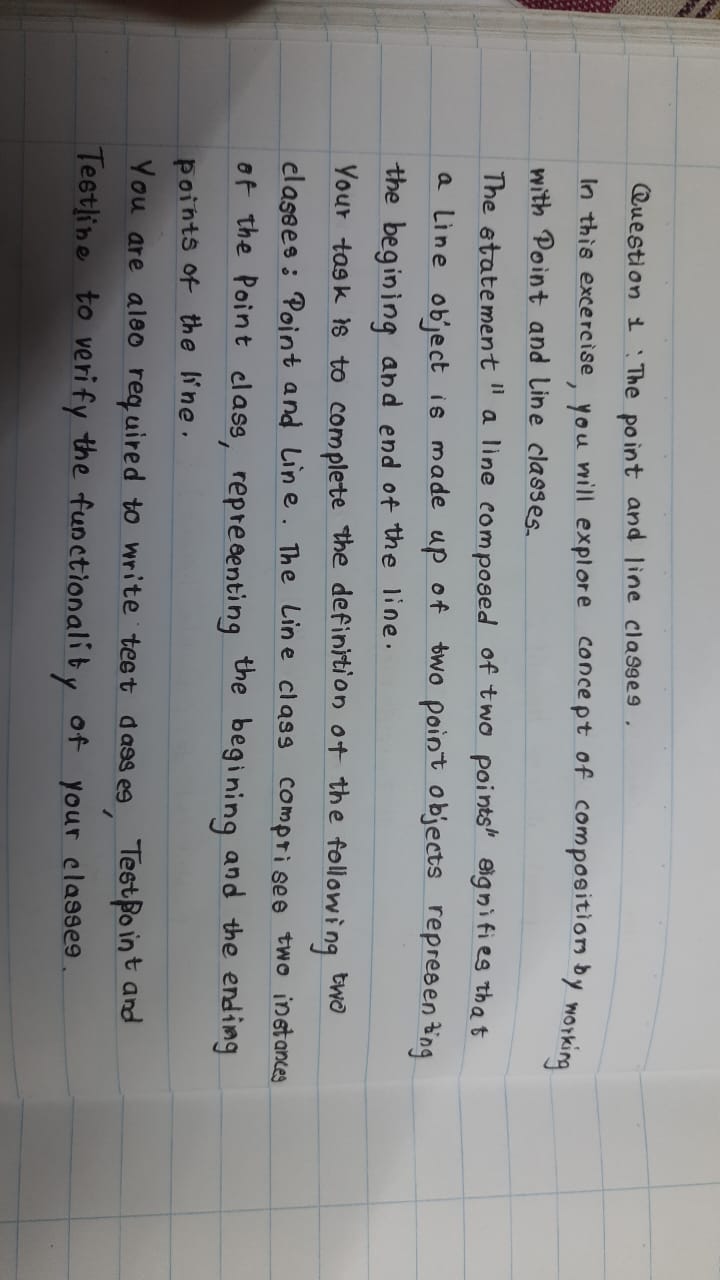 Question 1 : The point and line classes.
In this excercise, you will explore concept of composition by working
with Point and Line classes.
The statement " a line composed of two points" signifies that
a Line object is made up of two point objects representing
the begining and end of the line.
Your task is to complete the definition of the following two
classes: Point and Line. The Line class comprises two instances
of the Point class, representing the begining and the ending
points of the line.
You are also required to write test classes, TestPoint and
Testline to verify the functionality of your classes.